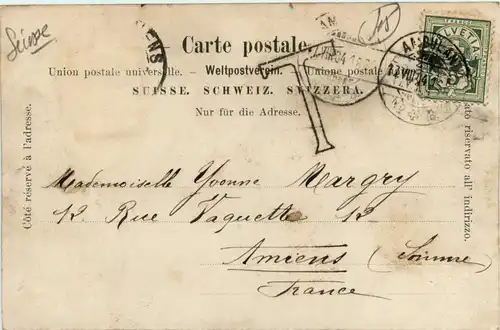 Suisse
Carte postale.
Union postale universelle. – Weltpostverein. – Unione postale
SUISSE. SCHWEIZ. SVIZZERA.
Nur für die Adresse.
Côté réservé à l'adresse.
T
HELVETIA
5
Mademoiselle Yvonne Margry
12 Rue Vaquette 12
Amiens (Somme
France
lato riservato all' indirizzo.